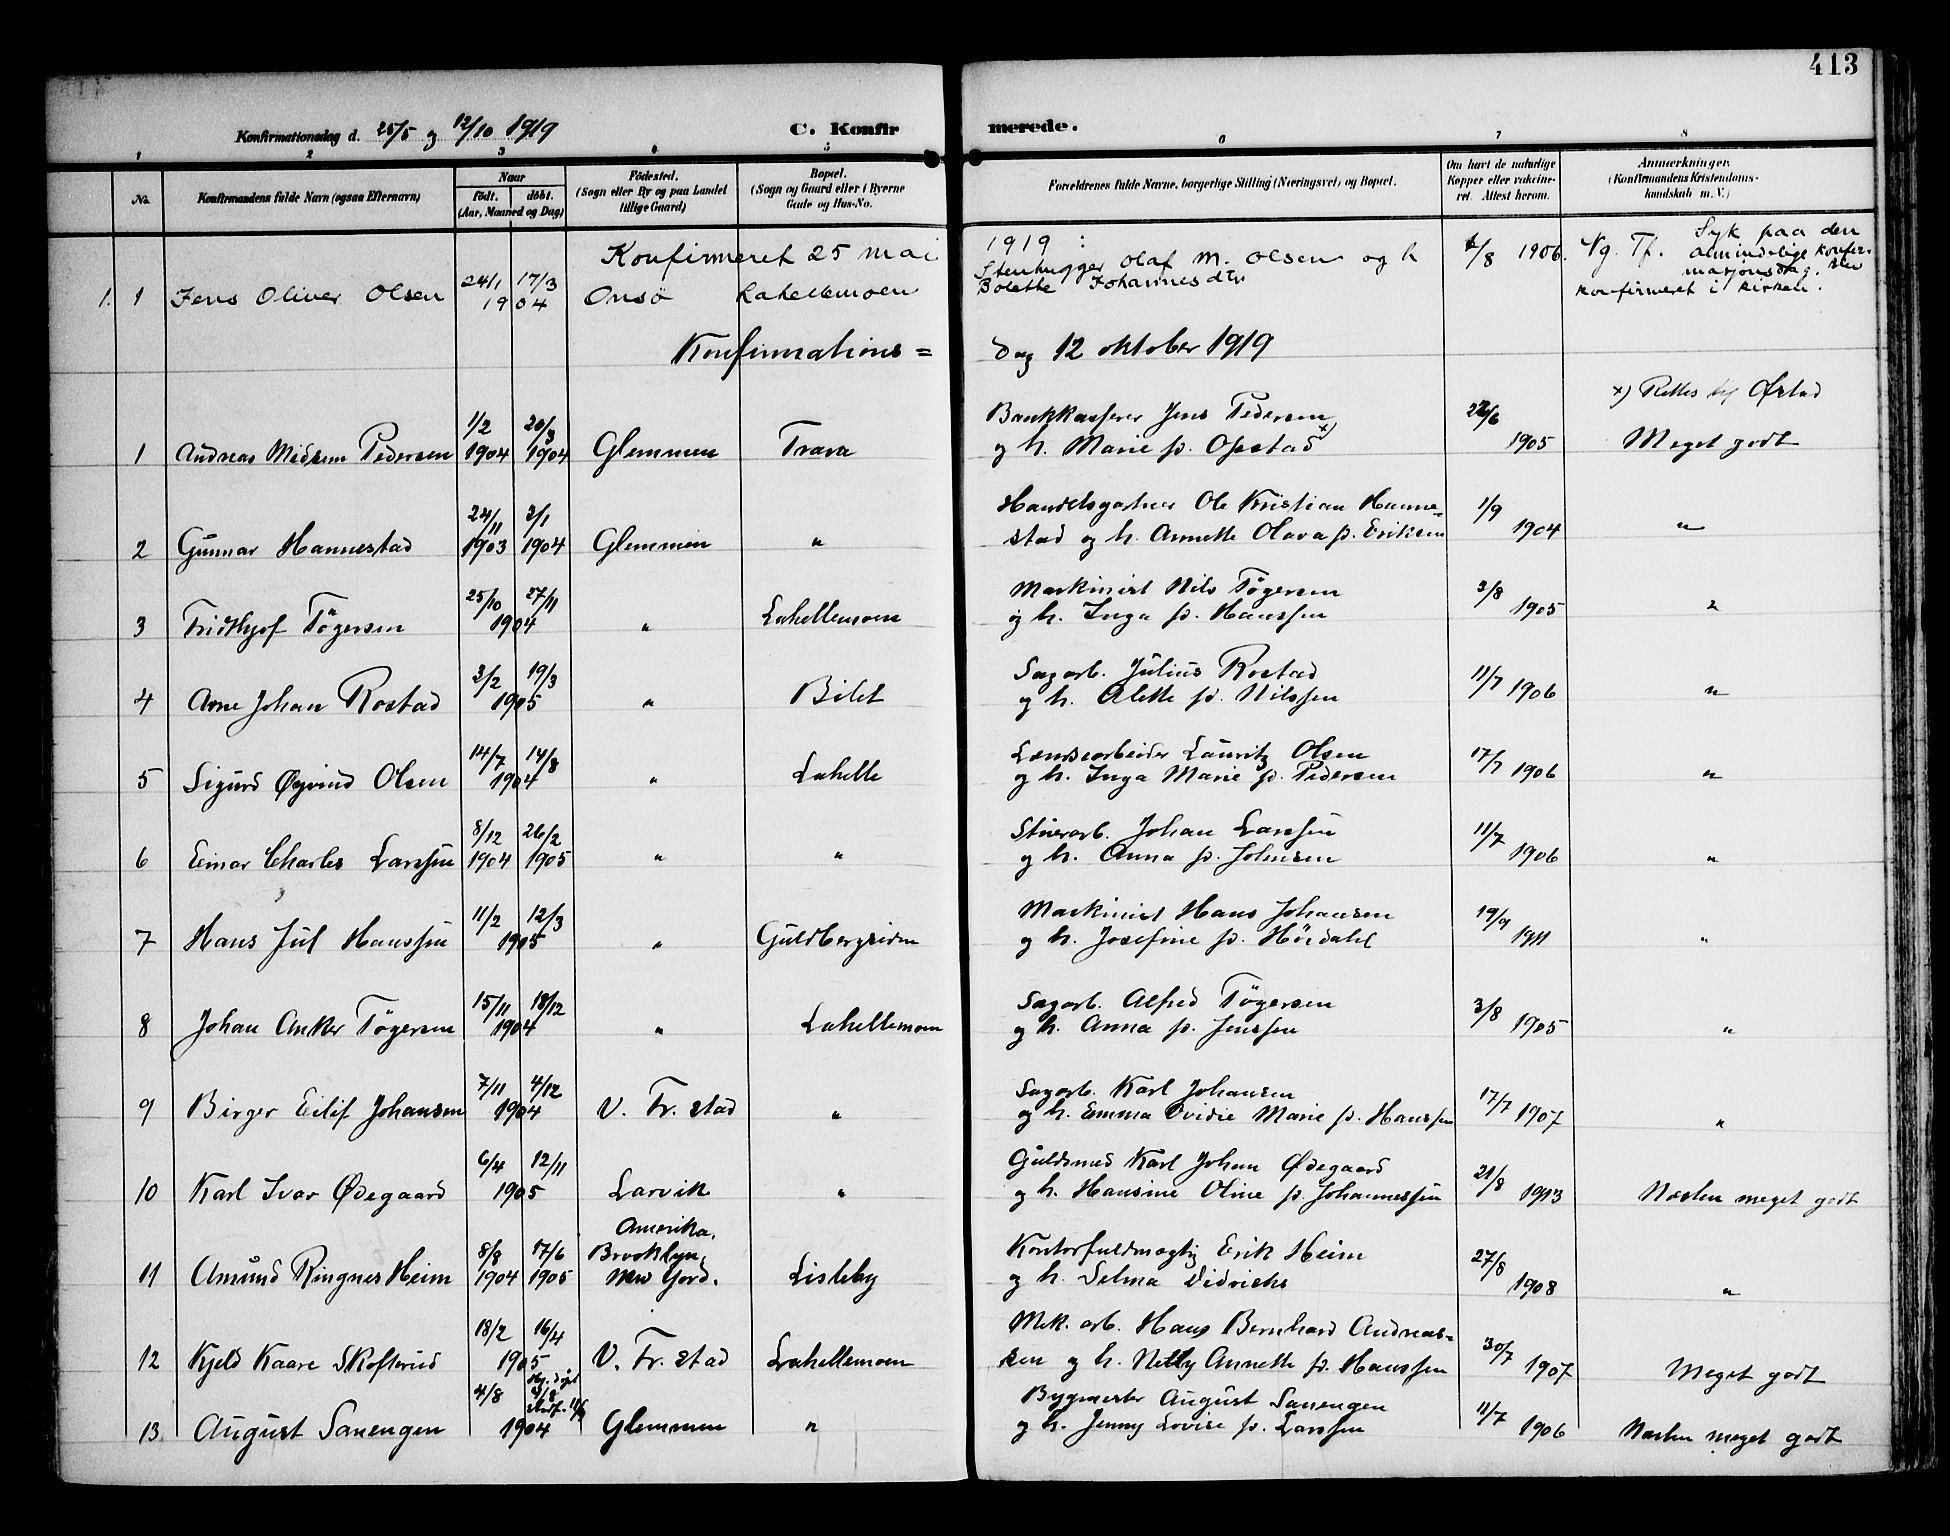 413
Konfirmationsdag d. 25/5 og 12/10 1919
C. Konfir merede.
1 2 3 4 5 6 7 8
No.
Konfirmandens fulde Navn (ogsaa Efternavn)
Naar
Födt. döbt.
(Aar, Maaned og Dag)
Födested.
(Sogn eller By og paa Landet
tillige Gaard)
Bopæl.
(Sogn og Gaard eller i Byerne
Gade og Hus-No.
Forældrenes fulde Navne, borgerlige Stilling (Næringsvei) og Bopæl.
Om havt de naturlige
Kopper eller vaccine-
ret. Attest herom.
Anmærkninger.
(Konfirmandens Kristendoms-
kundskab m. V.)
Konfirmeret 25 mai 1919 :
1. 1 Jens Oliver Olsen 24/1 17/3 1904 Onsö Lahellemoen
Stenhugger Olaf M. Olsen og h
Bolette Johannesdtr
6/8 1906. Ng. Tf. Syk paa den
almindelige konfir-
masjonsdag. Blev
konfirmeret i kirken.
Konfirmations = dag 12 oktober 1919
x) Rettes til Østad
1 Andreas Pedersen 1/2 1904 20/3 1904 Glemmen Trara
Bankkasserer Jens Pedersen
og h. Marie f. Opstad x)
22/6 1905 Meget godt
2 Gunnar Hannestad 24/11 1903 3/1 1904 Glemmen "
Handelsgartner Ole Kristian Hanne=
stad og h. Annette Olava f. Eriksen
1/9 1904 "
3 Fridthjof Tøgersen 25/10 27/11 1904 " Lahellemoen
Maskinist Nils Tøgersen
og h. Inga f. Hanssen
3/8 1905 "
4 Arne Johan Rostad 3/2 19/3 1905 " Bilet
Sagarb. Julius Rostad
og h. Alette f. Nilssen
11/7 1906 "
5 Sigurd Øyvind Olsen 14/7 14/8 1904 " Lahelle
Lændsearbeider Lauritz Olsen
og h. Inga Marie f. Pedersen
17/7 1906 "
6 Einar Charles Larssen 8/12 1904 26/2 1905 " "
Stuerarb. Johan Larssen
og h. Anna f. Johnsen
11/7 1906 "
7 Hans Jul Hanssen 11/2 12/3 1905 " Guldbergsiden
Maskinist Hans Johansen
og h. Josefine f. Hördahl
19/9 1911 "
8 Johan Anker Tøgersen 15/11 18/12 1904 " Lahellemoen
Sagarb. Alfred Tøgersen
og h. Anna f. Jenssen
3/8 1905 "
9 Birger Eilif Johansen 7/11 4/12 1904 V. Fr. stad "
Sagarb. Karl Johansen
og h. Emma Ovidie Marie f. Hanssen
17/7 1907 "
10 Karl Ivar Ødegaard 6/4 12/11 1905 Larvik "
Guldsmed Karl Johan Ødegaard
og h. Hansine Oline f. Johannessen
21/8 1913 Næsten meget godt
11 Amund Ringnes Heim 8/8 1904 17/6 1905
Amerika,
Brooklyn,
New Yord.
Lisleby
Kontorfuldmægtig Erik Heim
og h. Selma Didrichs
27/8 1908 "
12 Kjeld Kaare Skofterud 18/2 16/4 1905 V. Fr. stad Lahellemoen
Mek. arb. Hans Bernhard Andreas=
sen og h. Nelly Annette f. Hanssen
30/7 1907 Meget godt
13 August Sanengen 4/8 1904 Glemmen "
Bygmester August Sanengen
og h. Jenny Lovise f. Larssen
11/7 1906 Næsten meget godt